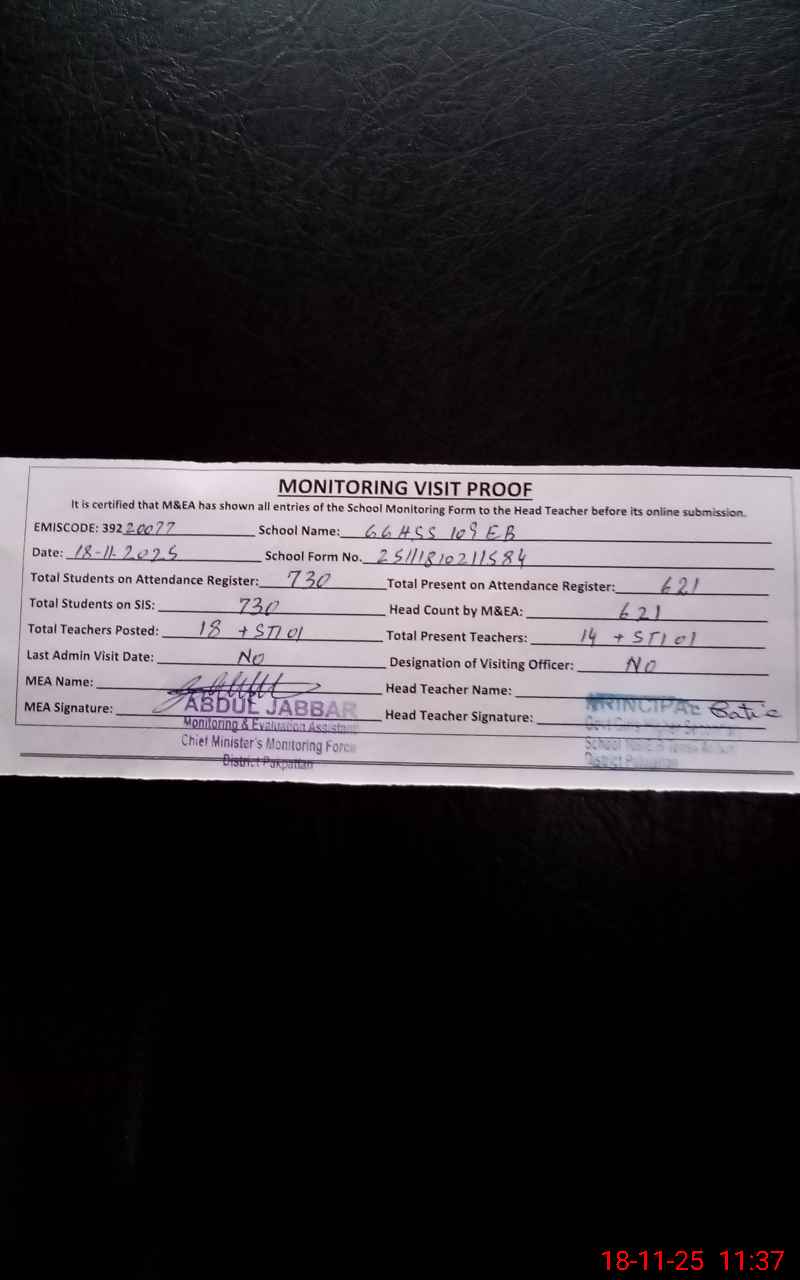 MONITORING VISIT PROOF
It is certified that M&EA has shown all entries of the School Monitoring Form to the Head Teacher before its online submission.
EMISCODE: 392 20077 School Name: GGHSS 109 EB
Date: 18-11-2025 School Form No. 25111810211584
Total Students on Attendance Register: 730 Total Present on Attendance Register: 621
Total Students on SIS: 730 Head Count by M&EA: 621
Total Teachers Posted: 18 + STI 01 Total Present Teachers: 14 + STI 01
Last Admin Visit Date: No Designation of Visiting Officer: No
MEA Name: Head Teacher Name:
MEA Signature: ABDUL JABBAR Head Teacher Signature: PRINCIPAL
Monitoring & Evaluation Assistant
Chief Minister's Monitoring Force
District Pakpattan
18-11-25 11:37